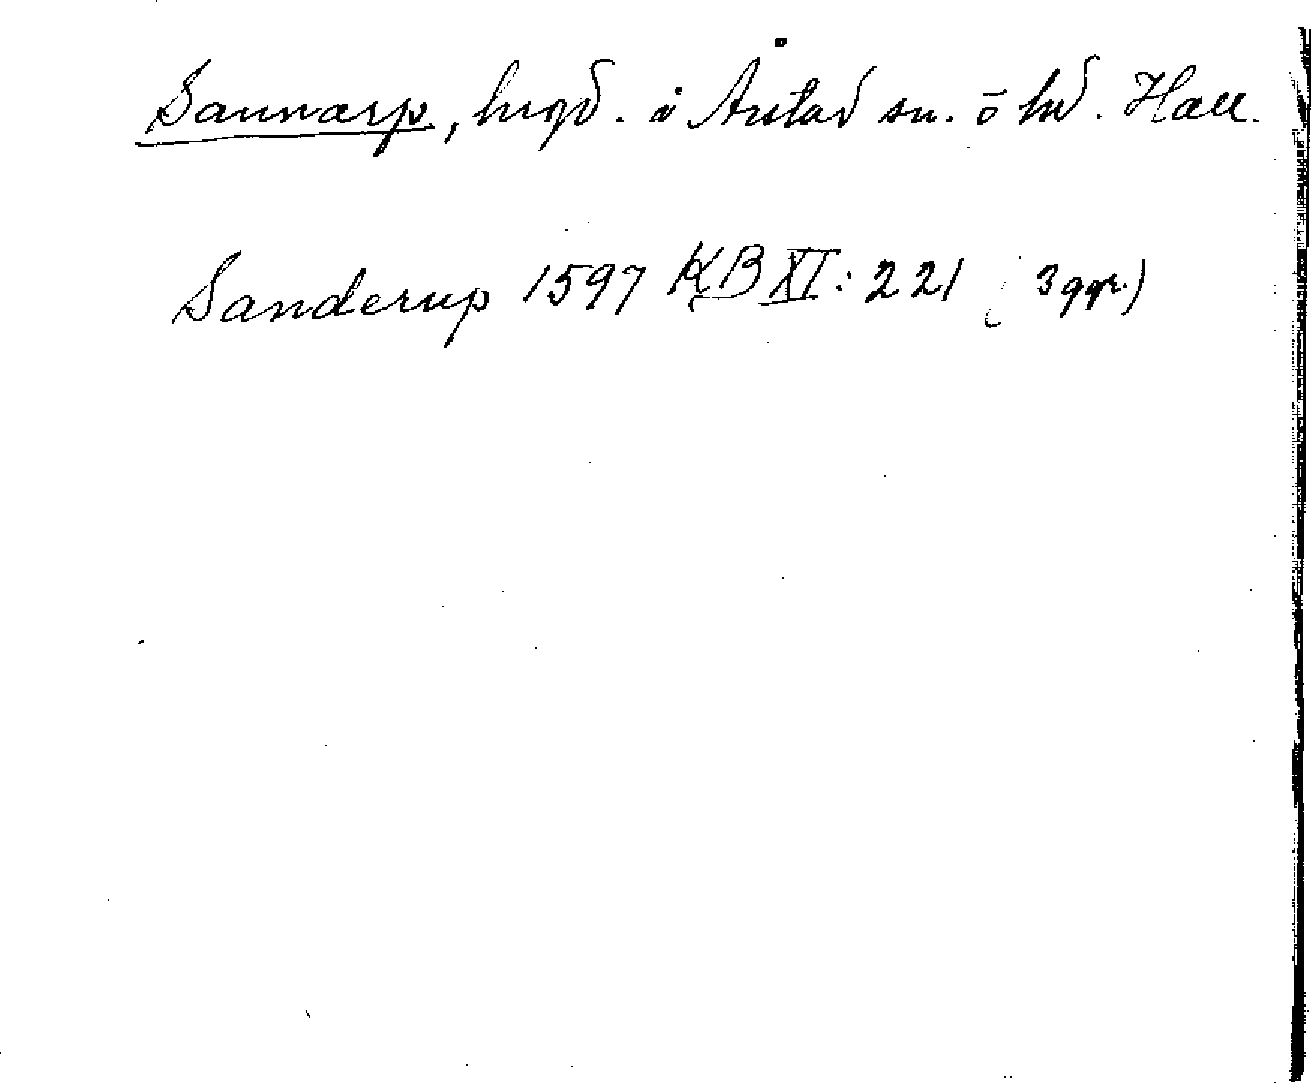 Sannarp, hrgd. i Årstad sn. o hd. Hall.
Sanderup 1597 KB XI: 221 (3 ggr.)